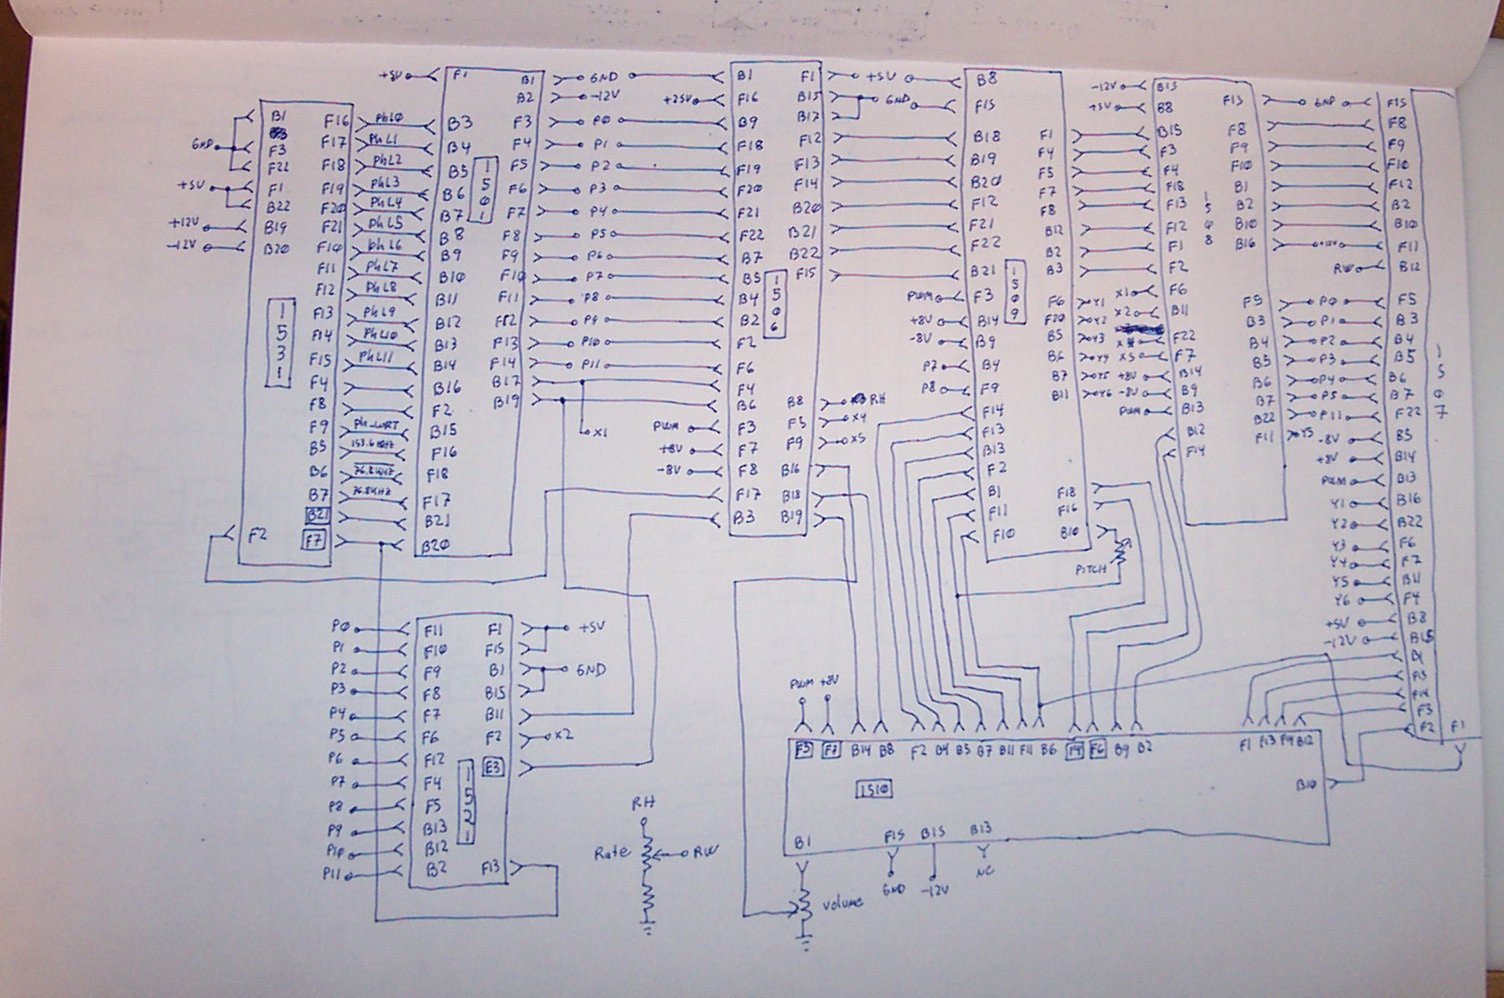 GND
+5V
+12V
-12V
B1
F3
F22
F1
B22
B19
B20
F2
1531
F16
F17
F18
F19
F20
F21
F10
F11
F12
F13
F14
F15
F4
F8
F9
B5
B6
B7
B21
F7
PhL0
PhL1
PhL2
PhL3
PhL4
PhL5
PhL6
PhL7
PhL8
PhL9
PhL10
PhL11
Ph-UART
153.6KHZ
76.8KHZ
76.8KHZ
+5V
F1
B3
B4
B5
B6
B7
B8
B9
B10
B11
B12
B13
B14
B16
F2
B15
F16
F18
F17
B21
B20
1501
B1
B2
F3
F4
F5
F6
F7
F8
F9
F10
F11
F12
F13
F14
B17
B19
GND
-12V
P0
P1
P2
P3
P4
P5
P6
P7
P8
P9
P10
P11
X1
+25V
PWM
+8V
-8V
B1
F16
B9
F18
F19
F20
F21
F22
B7
B5
B4
B2
F2
F6
F4
B6
F3
F7
F8
F17
B3
1506
F1
B15
B17
F12
F13
F14
B20
B21
B22
F15
B8
F5
F9
B16
B18
B19
+5V
GND
RH
X4
X5
PWM
+8V
-8V
P7
P8
B8
F15
B18
B19
B20
F12
F21
F22
B21
F3
B14
B9
B4
F9
F14
F13
B13
F2
B1
F11
F10
1509
F1
F4
F5
F7
F8
B12
B2
B3
F6
F20
B5
B6
B7
B11
F18
F16
B10
Y1
Y2
Y3
Y4
Y5
Y6
PITCH
-12V
+5V
X1
X2
X5
+8V
-8V
PWM
B15
B8
B15
F3
F4
F18
F13
F12
F1
F2
F6
B11
F22
F7
B14
B9
B13
B12
F14
1508
F15
F8
F9
F10
B1
B2
B10
B16
F5
B3
B4
B5
B6
B7
B22
F11
GND
RW
P0
P1
P2
P3
P4
P5
P11
Y5
-8V
+8V
PWM
Y1
Y2
Y3
Y4
Y5
Y6
+5V
-12V
F15
F8
F9
F10
F12
B2
B10
F11
B12
F5
B3
B4
B5
B6
B7
F22
B5
B14
B13
B16
B22
F6
F7
B11
F4
B8
B15
F3
F2
F1
1507
P0
P1
P2
P3
P4
P5
P6
P7
P8
P9
P10
P11
F11
F10
F9
F8
F7
F6
F12
F4
F5
B13
B12
B2
1521
F1
F15
B1
B15
B11
F2
E3
F13
+5V
GND
X2
RH
Rate
RW
PWM +8V
F3 F7 B14 B8 F2 B4 B5 B7 B11 F11 B6 F4 F6 B9 B2 F1 F13 F14 B12
1510
B10
B1 F15 B15 B13
GND -12V NC
Volume